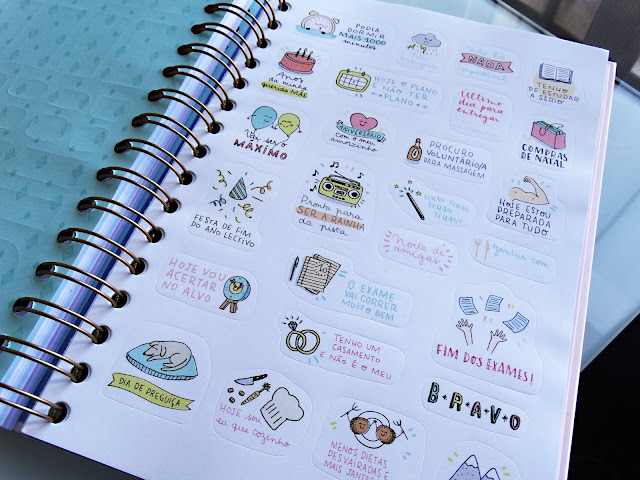 PODIA
DORMIR
MAIS 1000
minutos
NADA
TENHO
DE ESTUDAR
A SÉRIO
Anos
da minha
querida MÃE
HOJE O PLANO
É NÃO TER
PLANO
Último
dia para
entregar
COMPRAS
DE NATAL
MÁXIMO
ANIVERSÁRIO
com o meu
amorzinho
PROCURO
VOLUNTÁRIO/A
PARA MASSAGEM
HOJE ESTOU
PREPARADA
PARA TUDO
FESTA DE FIM
DO ANO LECTIVO
Pronta para
SER A RAINHA
da pista
TCHAN!
Noite de
amigas
jantar com
HOJE VOU
ACERTAR
NO ALVO
O EXAME
VAI CORRER
MUITO BEM
FIM DOS EXAMES!
TENHO UM
CASAMENTO
E NÃO É O MEU
DIA DE PREGUIÇA
HOJE sou
eu que cozinho
BRAVO
MENOS DIETAS
DESVAIRADAS E
MAIS JANTARES